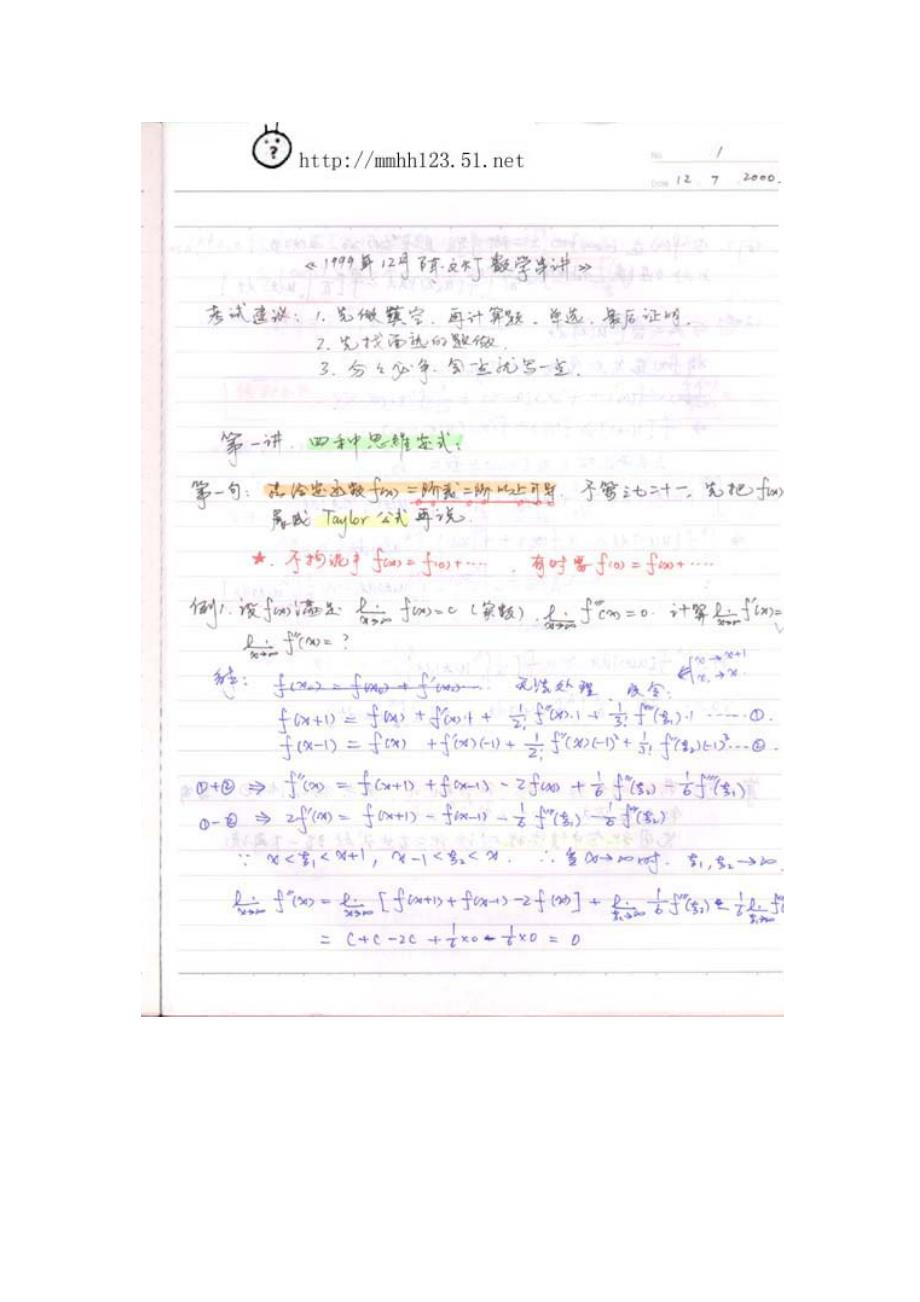 http://mmhh123.51.net
No 1
Date 12 7 2000.
《1999年12月陈文灯数学串讲》
考试建议: 1. 先做填空, 再计算题, 单选, 最后证明.
2. 先找面熟的题做.
3. 分分必争, 会一点就写一点.
第一讲. 四种思维定式:
第一句: 若给定函数f(x)二阶或二阶以上可导, 不管三七二十一, 先把f(x)
展成 Taylor 公式再说.
★. 不拘泥于 f(x) = f(0)+ ····, 有时要 f(0) = f(x)+ ····
例1. 设f(x)满足 lim x→∞ f(x)=c (常数), lim x→∞ f'''(x)=0. 计算 lim x→∞ f'(x)=
lim x→∞ f''(x)= ?
f(x₀) = f(x₀) + f'(x₀)···· 无法处理, 改令: { x₀→x+1
x₁→x.
f(x+1) = f(x) + f'(x)·1 + 1/2! f''(x)·1 + 1/3! f'''(ξ₁)·1 ······①.
f(x-1) = f(x) + f'(x)(-1) + 1/2! f''(x)(-1)² + 1/3! f'''(ξ₂)(-1)³···②.
①+② ⇒ f''(x) = f(x+1) + f(x-1) - 2f(x) + 1/6 f'''(ξ₂) - 1/6 f'''(ξ₁)
①-② ⇒ 2f'(x) = f(x+1) - f(x-1) - 1/6 f'''(ξ₁) - 1/6 f'''(ξ₂)
∵ x<ξ₁<x+1, x-1<ξ₂<x. ∴ 当x→∞时. ξ₁,ξ₂→∞
lim x→∞ f''(x) = lim x→∞ [f(x+1)+f(x-1)-2f(x)] + lim ξ₂→∞ 1/6 f'''(ξ₂) - 1/6 lim ξ₁→∞ f
= C+C-2C + 1/6×0 - 1/6×0 = 0